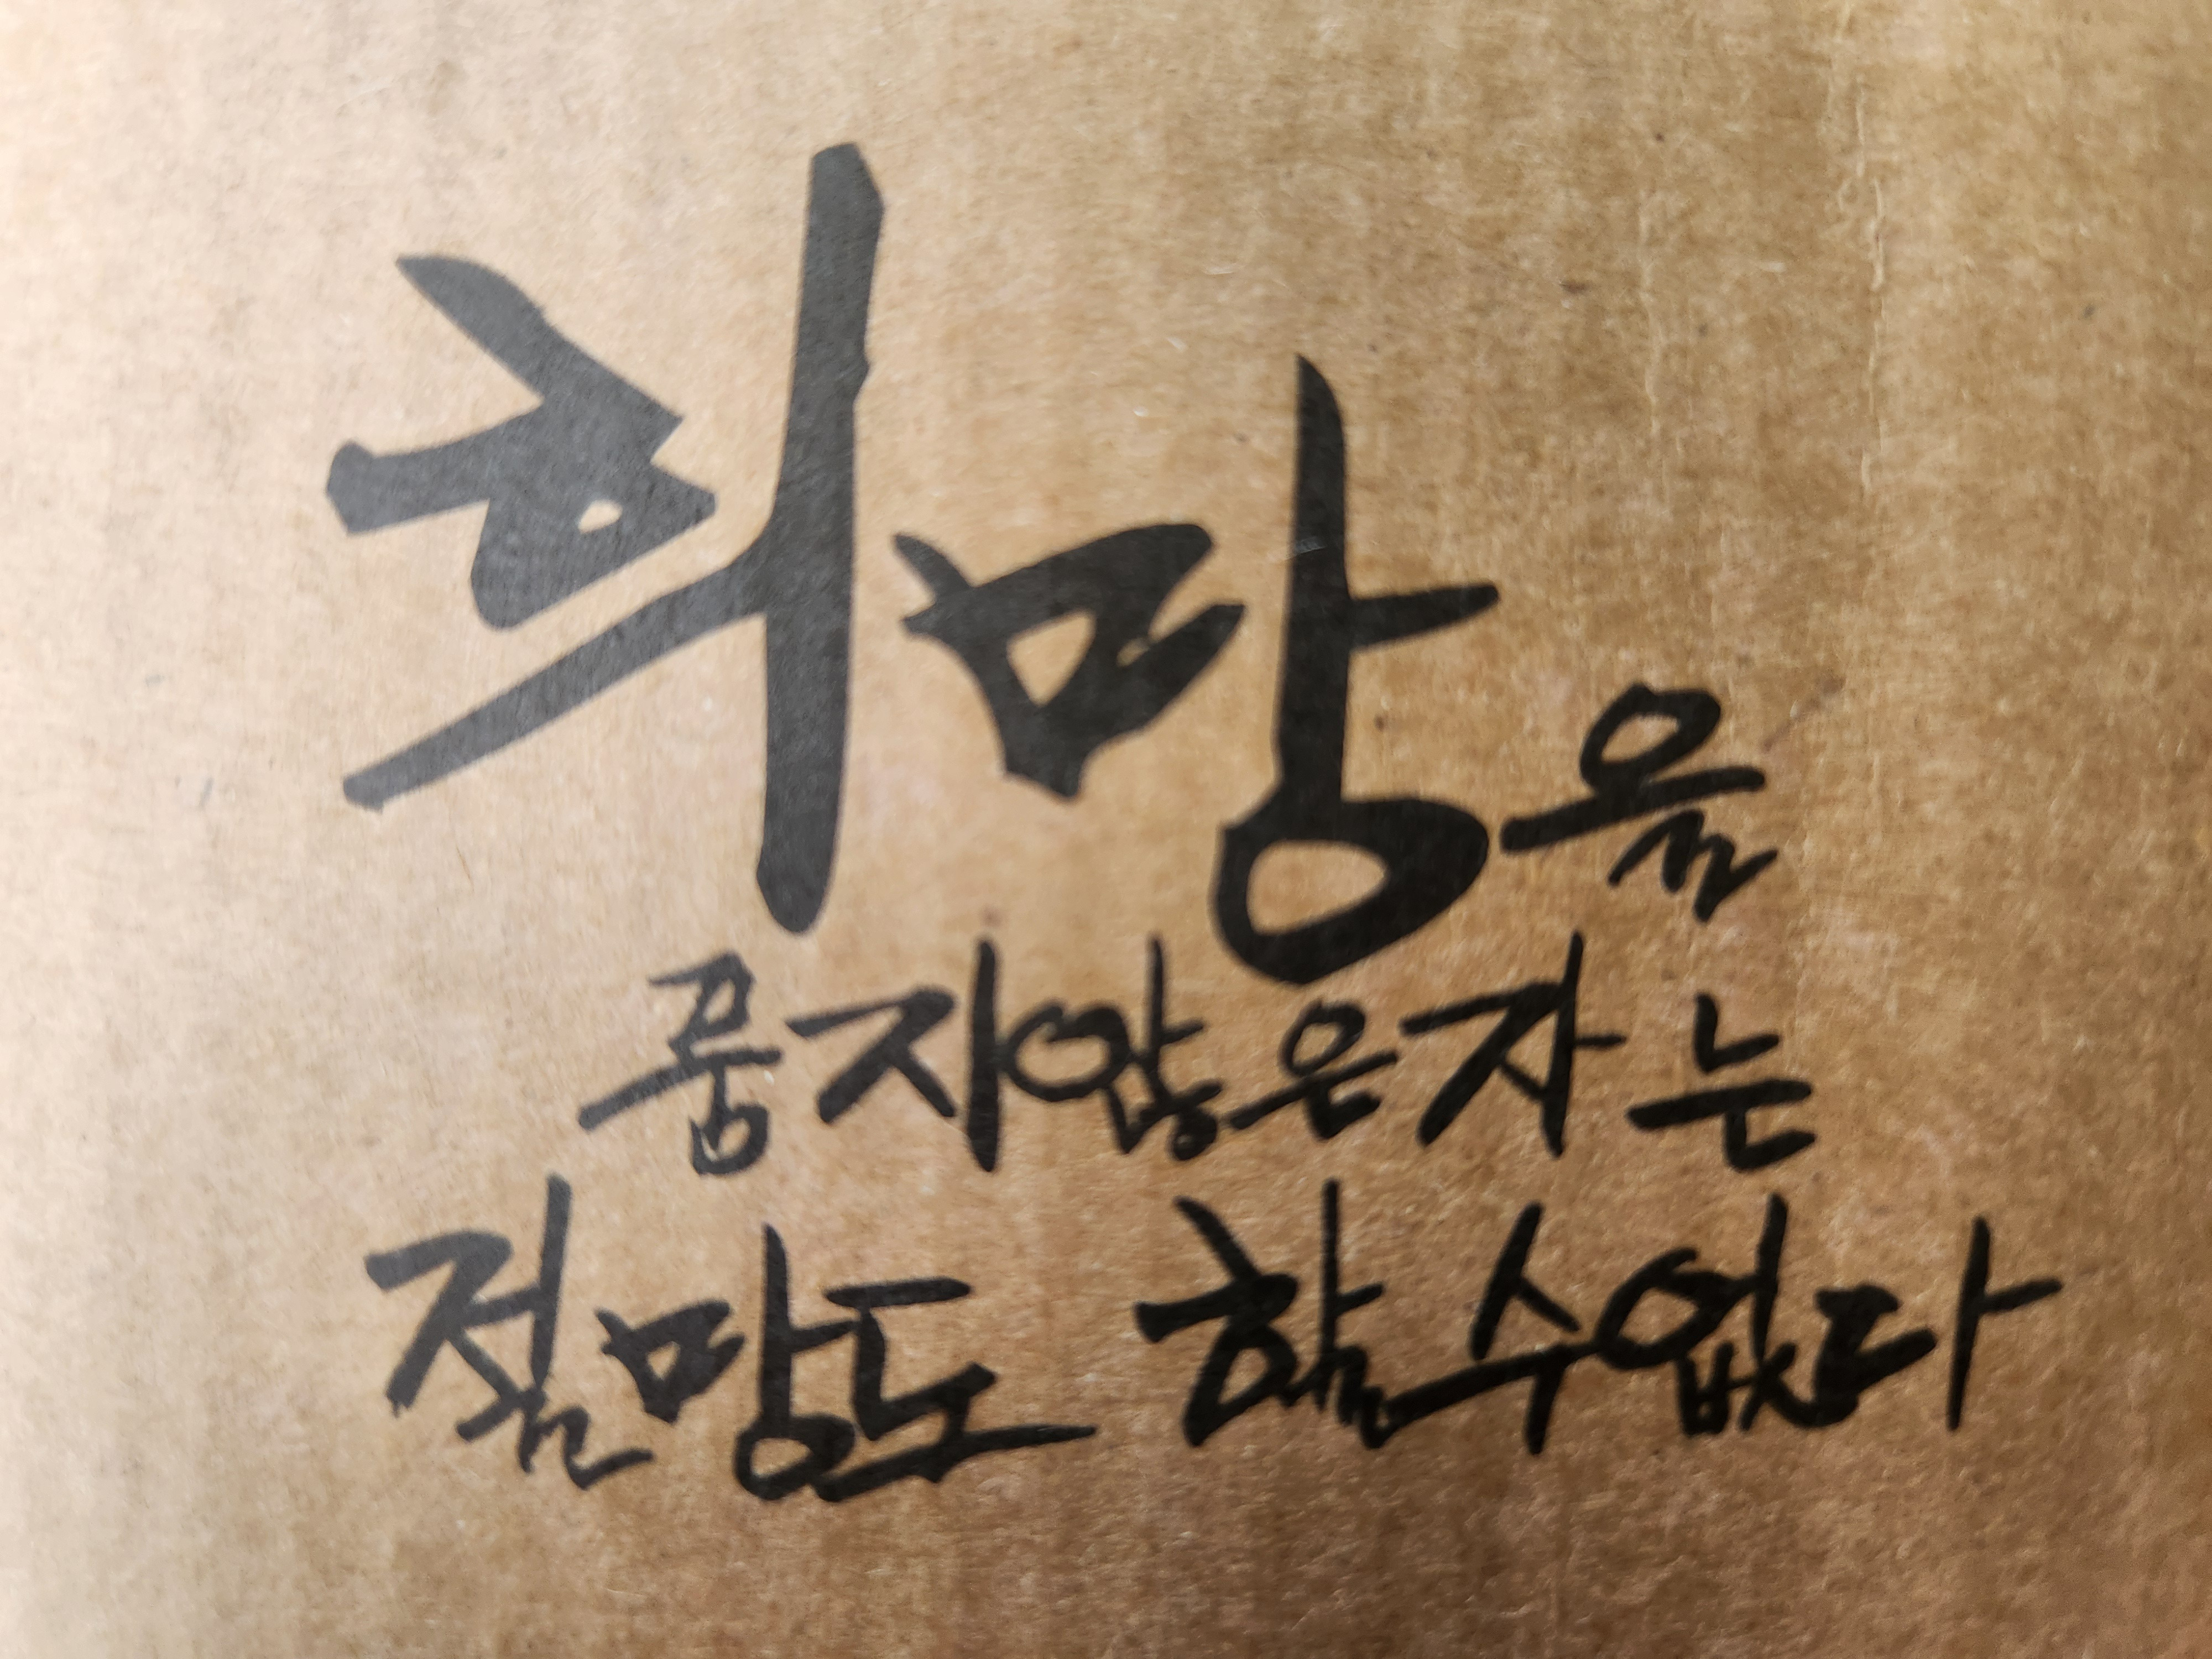 희망을
품지않은자는
절망도 할수없다